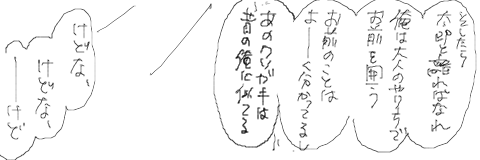 そしたら
太郎と離ればなれ
俺は大人のやりくちで
お前を囲う
お前のことは
よーく分かってるし
あのクソガキは
昔の俺に似てる
けどな、
けどな、
――けど